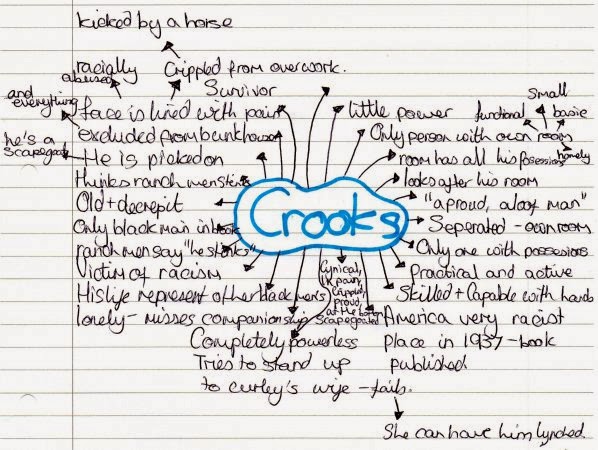 kicked by a horse
racially abused
Crippled from overwork.
Survivor
and everything
face is lined with pain
he's a scapegoat
excluded from bunkhouse
He is picked on
thinks ranch men stink
Old + decrepit
Only black man in book
ranch men say "he stinks"
Victim of racism
His life represent other black men's
lonely - misses companionship
Completely powerless
Tries to stand up
to curley's wife - fails.
She can have him lynched.
Cynical,
in pain,
crippled,
proud,
at the bottom
scapegoated
Crooks
little power
Small
functional
basic
homely
Only person with own room
room has all his possessions
looks after his room
"a proud, aloof man"
Seperated - own room
Only one with possessions
Practical and active
Skilled + Capable with hands
America very racist
place in 1937 - book
published.